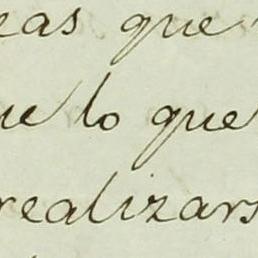 eas que
ue lo que
realizars